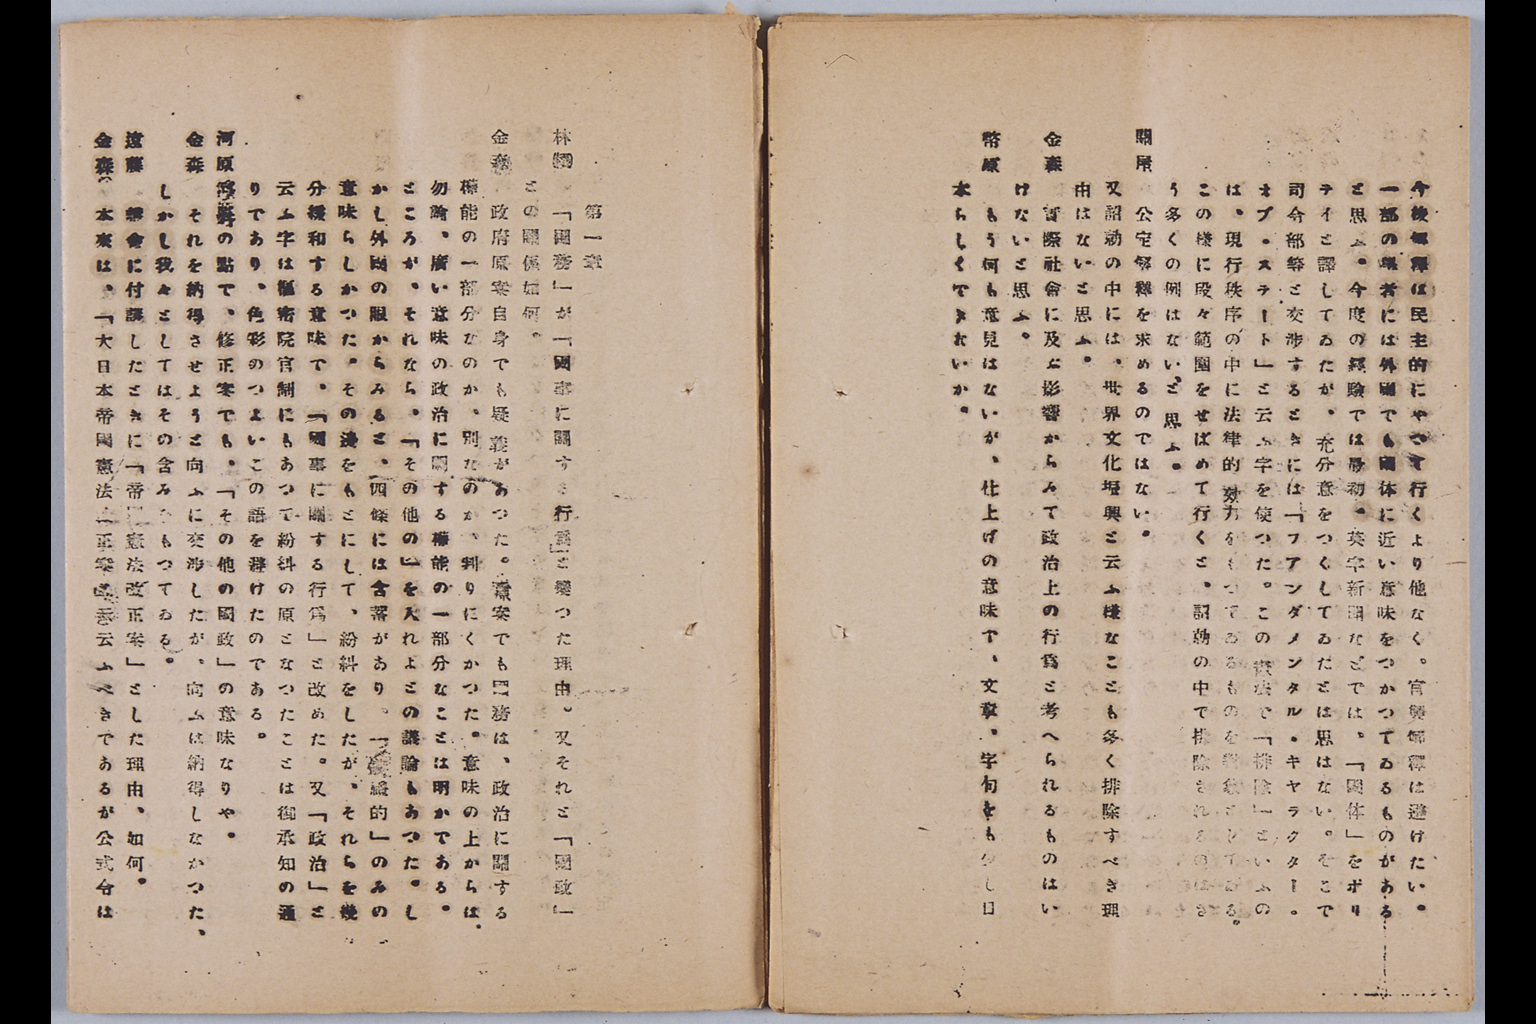 今後解釋は民主的にやつて行くより他なく。官製解釋は避けたい。
一部の學者には外國でも國体に近い意味をつかつてゐるものがある
と思ふ。今度の經驗では最初。英字新聞などでは。「國体」をポリ
テイと譯してゐたが、充分意をつくしてゐたとは思はない。そこで
司令部等と交渉するときには「フアンダメンタル・キヤラクター。
オブ・ステート」と云ふ字を使つた。この憲法で「排除」といふの
は、現行秩序の中に法律的効力をもつてゐるものを
この様に段々範圍をせばめて行くと、詔勅の中で排除されるのはさ
う多くの例はないと思ふ。
關屋　公定解釋を求めるのではない。
又詔勅の中には、世界文化振興と云ふ様なことも多く排除すべき理
由はないと思ふ。
金森　實際社會に及ぶ影響からみて政治上の行爲と考へられるものはい
けないと思ふ。
幣原　もう何も意見はないが、仕上げの意味で、文章、字句をも少し日
本らしくできないか。
第一章
林　「國務」が「國事に關する行爲」と變つた理由。又それと「國政」
との關係如何。
金森　政府原案自身でも疑義があつた。憲案でも國務は、政治に關する
權能の一部分なのか、別なのか、判りにくかつた。意味の上からは、
勿論、廣い意味の政治に關する權能の一部分なことは明かである。
ところが、それなら、「その他の」を入れよとの議論もあつた。し
かし外國の眼からみると、四條には含蓄があり。「的」のみの
意味らしかつた。その邊をもとにして、紛糾をしたが、それらを幾
分緩和する意味で。「國事に關する行爲」と改めた。又「政治」と
云ふ字は樞密院官制にもあつて紛糾の原となつたことは御承知の通
りであり、色彩のつよいこの語を避けたのである。
河原　の點で、修正案でも、「その他の國政」の意味なりや。
金森　それを納得させようと向ふに交渉したが、向ふは納得しなかつた、
しかし我々としてはその含みをもつてゐる。
遠藤　議會に付議したときに「帝國憲法改正案」とした理由、如何。
金森　本來は、「大日本帝國憲法改正案」と云ふべきであるが公式令は